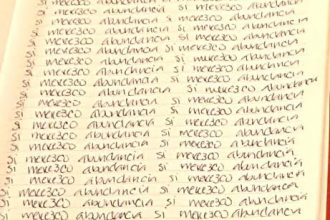 si merezco abundancia si merezco abundancia
si merezco abundancia si merezco abundancia
si merezco abundancia si merezco abundancia
si merezco abundancia si merezco abundancia
si merezco abundancia si merezco abundancia
si merezco abundancia si merezco abundancia
si merezco abundancia si merezco abundancia
si merezco abundancia si merezco abundancia
si merezco abundancia si merezco abundancia
si merezco abundancia si merezco abundancia
si merezco abundancia si merezco abundancia
si merezco abundancia si merezco abundancia
si merezco abundancia si merezco abundancia
si merezco abundancia si merezco abundancia
si merezco abundancia si merezco abundancia